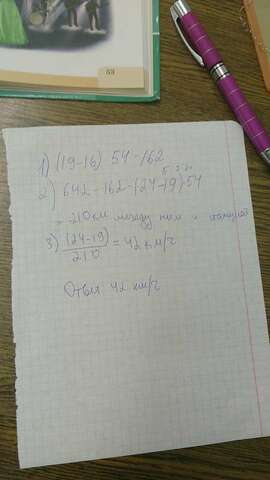 53
1) (19-16) 54-162
5 270
2) 642-162-(24-19)54
= 210 км между ним и
3) (24-19)
210
= 42 км/ч
Ответ 42 км/ч